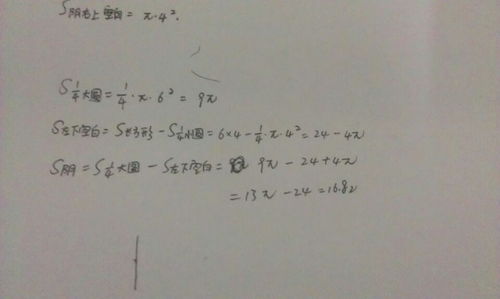 S阴右上空白 = π·4².
S¼大圆 = ¼·π·6² = 9π
S左下空白 = S长方形 - S¼小圆 = 6×4 - ¼·π·4² = 24 - 4π
S阴 = S¼大圆 - S左下空白 = 9π - 24 + 4π
= 13π - 24 = 16.82